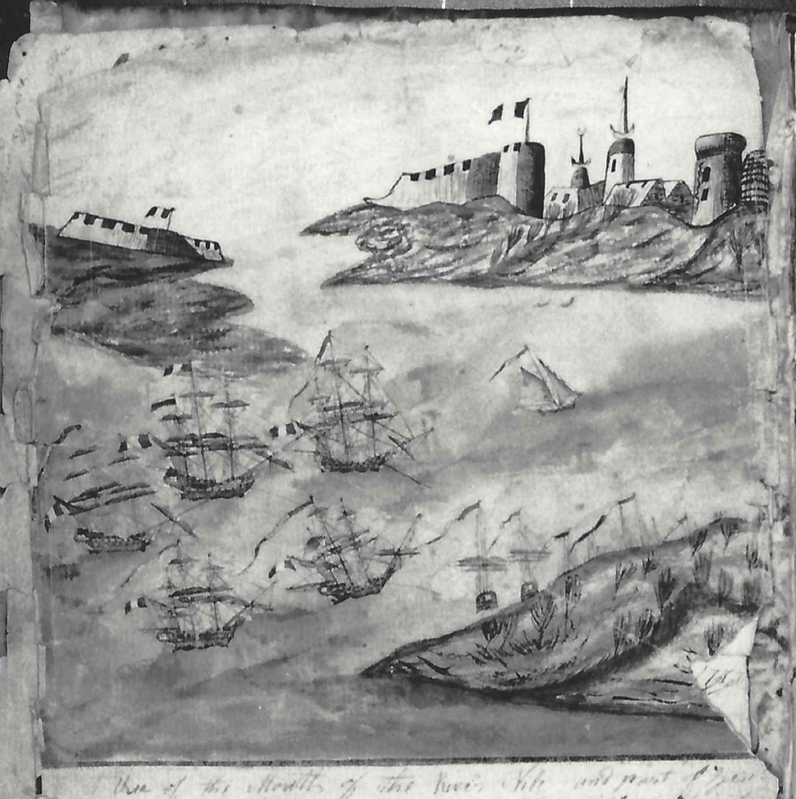 of the Mouth of the River Nile and part of